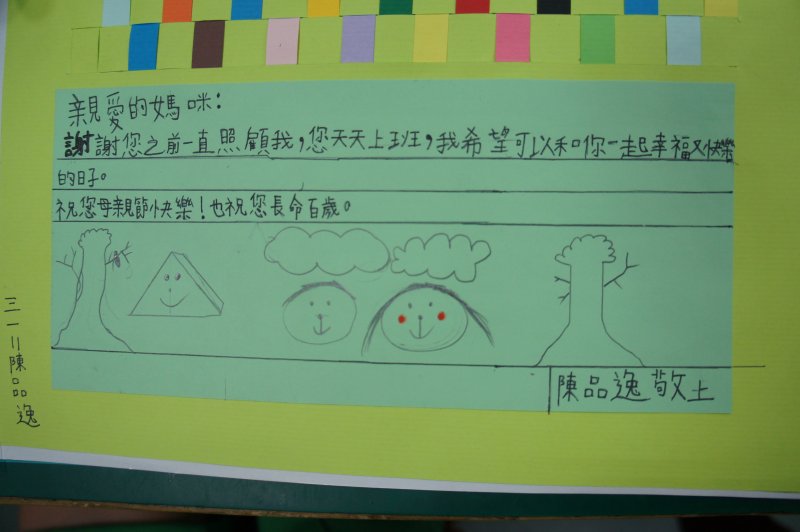 親愛的媽咪：
謝謝您之前一直照顧我，您天天上班，我希望可以和你一起幸福又快樂
的日子。
祝您母親節快樂！也祝您長命百歲。
陳品逸敬上
三一11陳品逸